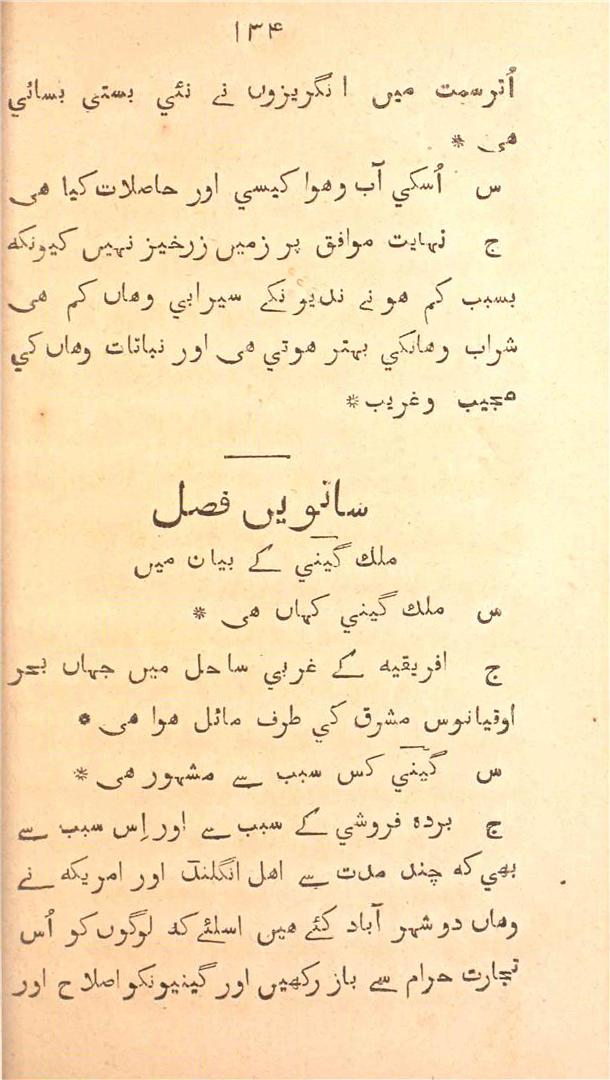 ۱۳۴
اُترسمت میں انگریزوں نے نئي بستي بسائي
هی *
س اُسکي آب وهوا کیسي اور حاصلات کیا هی
ج نہایت موافق پر زمین زرخیز نہیں کیونکه
بسبب کم هونے ندیونکے سیرابي وهاں کم هی
شراب وهانکي بہتر هوتي هی اور نباتات وهاں کي
عجیب وغریب *
ساتویں فصل
ملك گیني کے بیان میں
س ملك گیني کہاں هی *
ج افریقیه کے غربي ساحل میں جہاں بحر
اوقیانوس مشرق کي طرف مائل هوا هی *
س گیني کس سبب سے مشہور هی *
ج برده فروشي کے سبب سے اور اِس سبب سے
بھي که چند مدت سے اهل انگلنڈ اور امریکه نے
وهاں دو شہر آباد کئے هیں اسلئے که لوگوں کو اُس
تجارت حرام سے باز رکھیں اور گینیونکو اصلاح اور